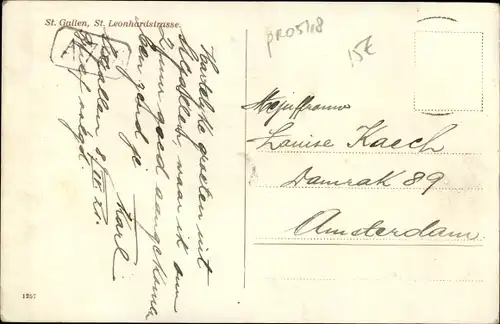 St. Gallen, St. Leonhardstrasse.
PRO5418
15€
Hartelijke groeten uit
St gallen, waar ik om
goed aangekomen
ben
Karl.
St gallen 8/IV. 21.
Mejuffrouw
Louise Kaech
Damrak 89
Amsterdam.
1257